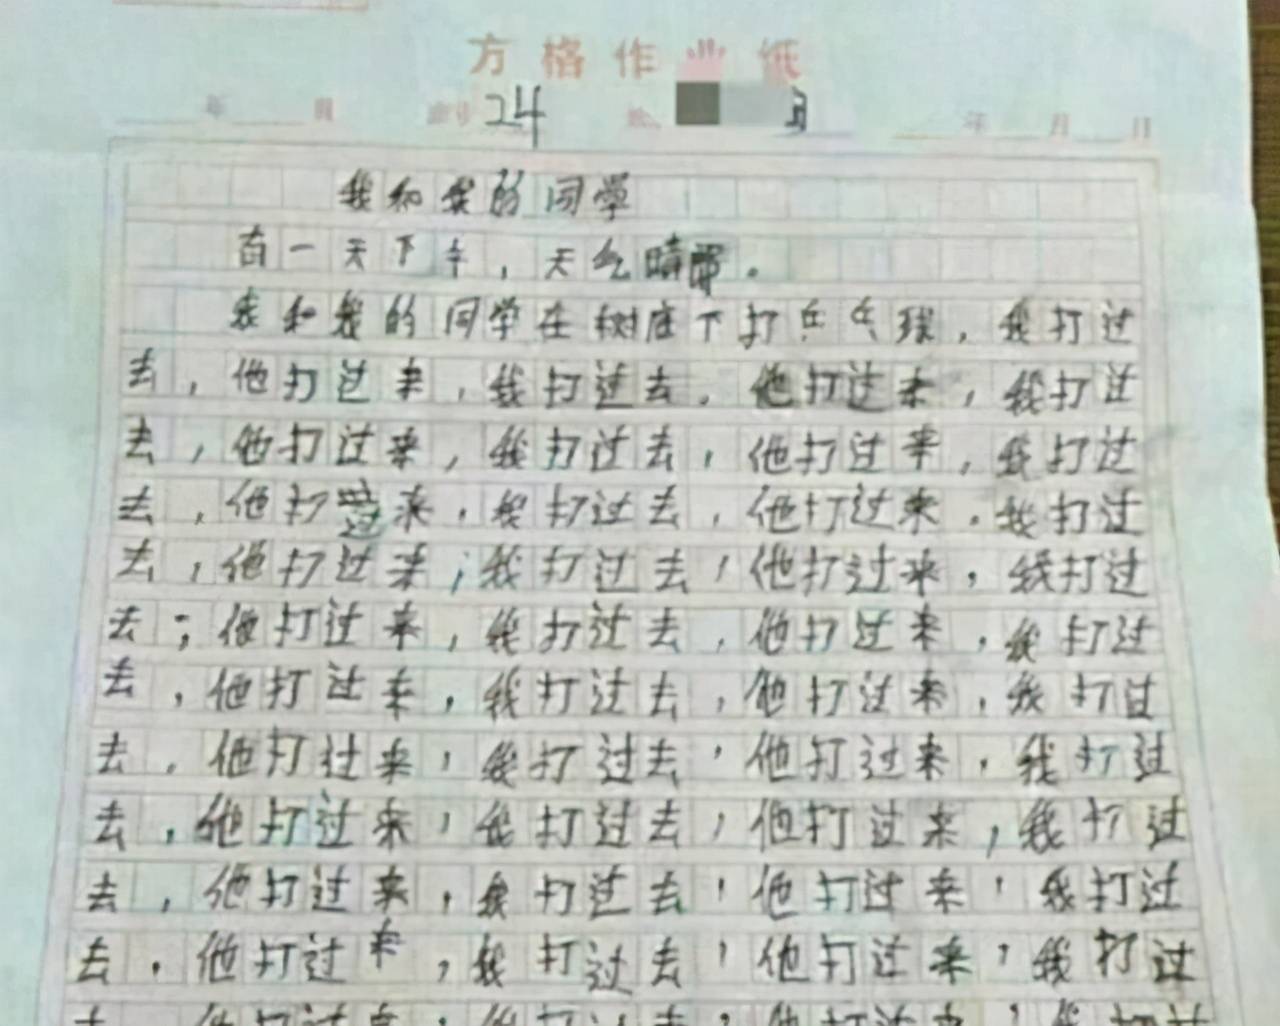 方格作 纸
年 月 24 年 月 日
我和我的同学
有一天下午，天气晴
我和我的同学在树底下打乒乓球，我打过
去，他打过来，我打过去，他打过来，我打过
去，他打过来，我打过去，他打过来，我打过
去，他打过来，我打过去，他打过来，我打过
去，他打过来，我打过去，他打过来，我打过
去，他打过来，我打过去，他打过来，我打过
去，他打过来，我打过去，他打过来，我打过
去，他打过来，我打过去，他打过来，我打过
去，他打过来，我打过去，他打过来，我打过
去，他打过来，我打过去，他打过来，我打过
去，他打过来，我打过去，他打过来，我打过
去，他打过来，我打过去，他打过来，我打过